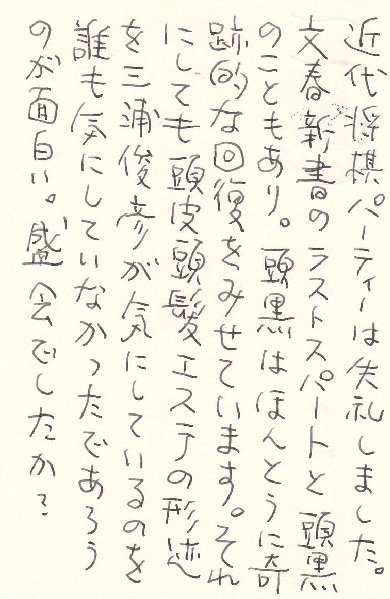 近代将棋パーティーは失礼しました。
文春新書のラストスパートと頭黒
のこともあり。頭黒はほんとうに奇
跡的な回復をみせています。それ
にしても頭皮頭髪エステの形迹
を三浦俊彦が気にしているのを
誰も気にしていなかったであろう
のが面白い。盛会でしたか?